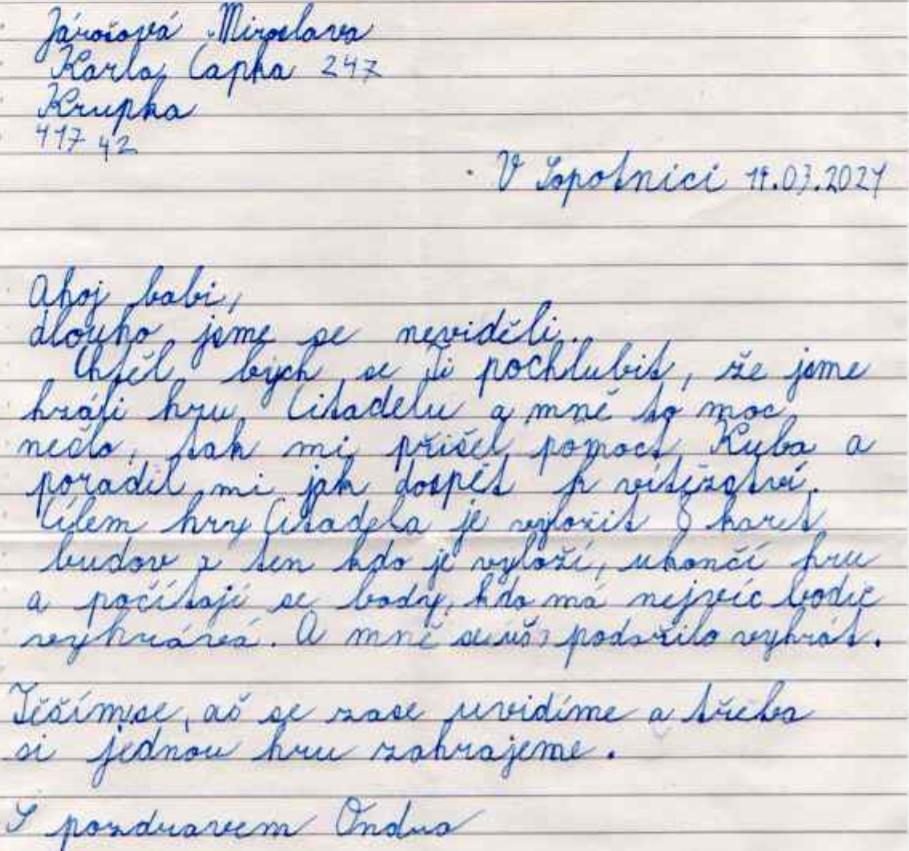 Járošová Miroslava
Karla Čapka 247
Krupka
417 42
V Sopotnici 11.03.2021
Ahoj babi,
dlouho jsme se neviděli.
Chtěl bych se Ti pochlubit, že jsme
hráli hru Citadelu a mně to moc
nešlo, tak mi přišel pomoct Kuba a
poradil mi jak dospět k vítězství.
Cílem hry Citadela je vyložit 8 karet
budov a ten kdo je vyloží, ukončí hru
a počítají se body, kdo má nejvíc bodů
vyhrává. A mně se už podařilo vyhrát.
Těšímse, až se zase uvidíme a třeba
si jednou hru zahrajeme.
S pozdravem Ondra